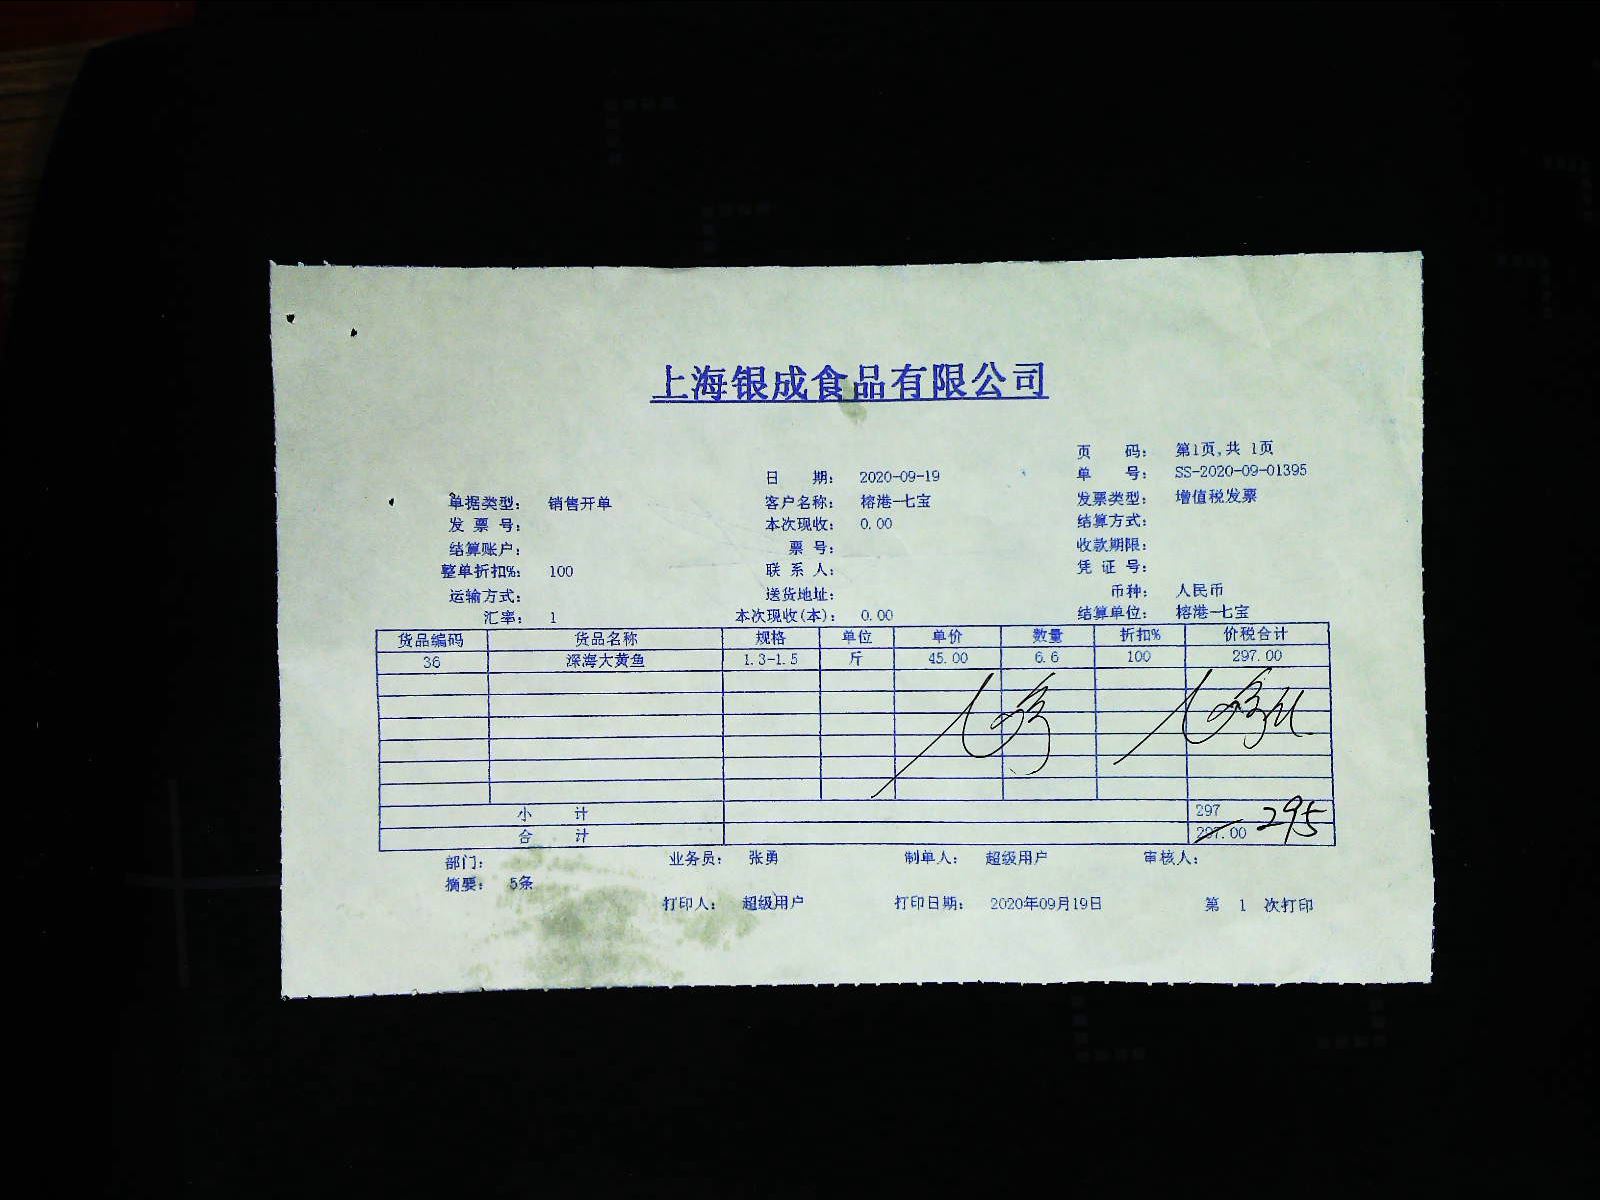 上海银成食品有限公司
页 码: 第1页,共 1页
日 期: 2020-09-19 单 号: SS-2020-09-01395
单据类型: 销售开单 客户名称: 榕港-七宝 发票类型: 增值税发票
发 票 号: 本次现收: 0.00 结算方式:
结算账户: 票 号: 收款期限:
整单折扣%: 100 联 系 人: 凭 证 号:
运输方式: 送货地址: 币种: 人民币
汇率: 1 本次现收(本): 0.00 结算单位: 榕港-七宝
货品编码 货品名称 规格 单位 单价 数量 折扣% 价税合计
36 深海大黄鱼 1.3-1.5 斤 45.00 6.6 100 297.00
小 计 297
合 计 297.00 295
部门: 业务员: 张勇 制单人: 超级用户 审核人:
摘要: 5条
打印人: 超级用户 打印日期: 2020年09月19日 第 1 次打印